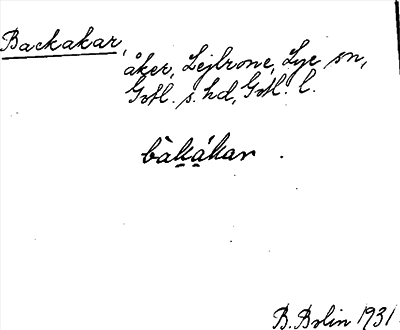 Backakar,
åker, Lejbrone, Lye sn,
Gotl. s. hd, Gotl. l.
bàkákar.
B. Bolin 1931